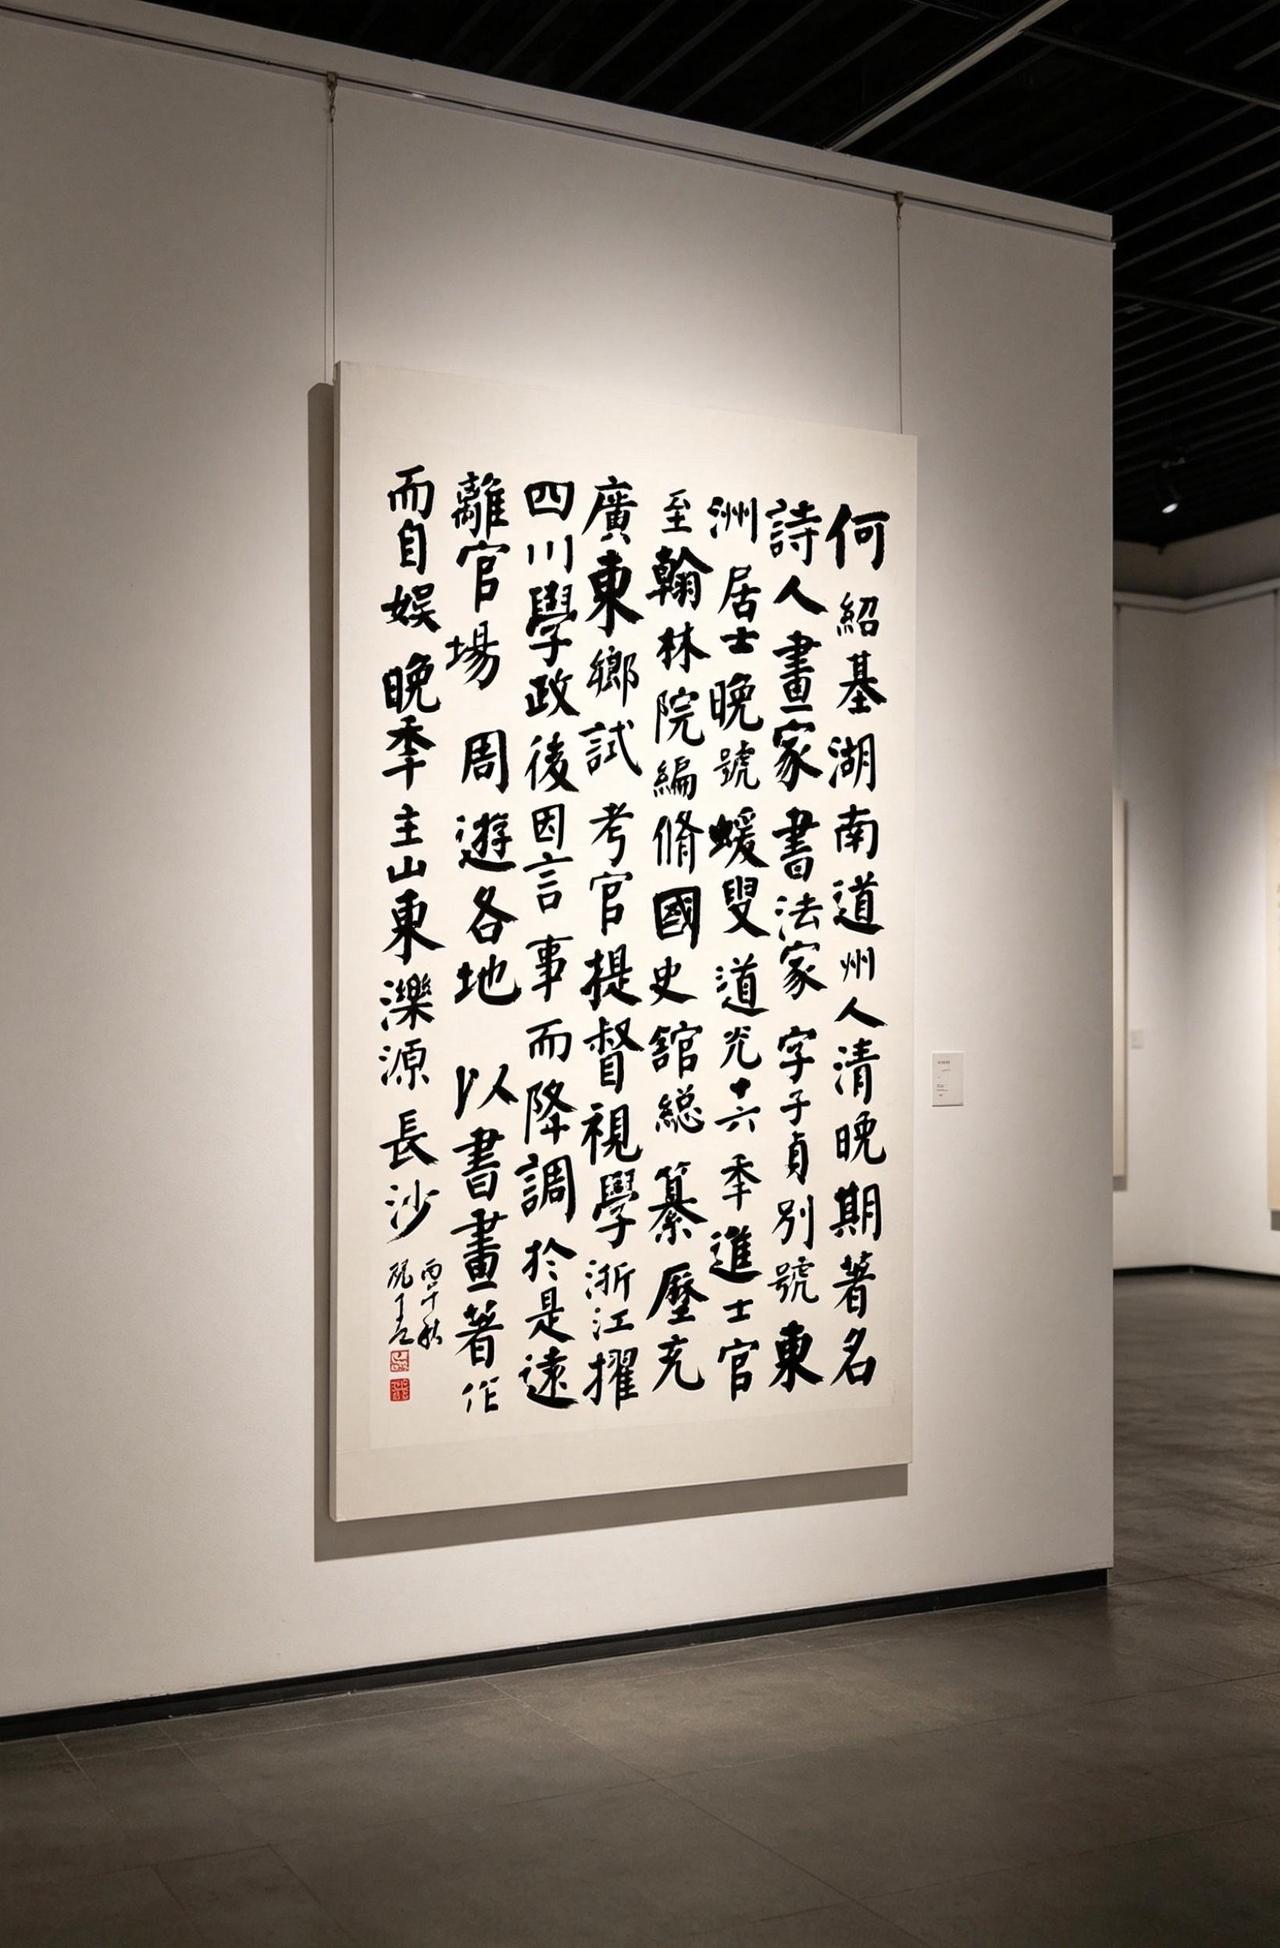 何紹基湖南道州人清晚期著名
詩人畫家書法家字子貞別號東
洲居士晚號蝯叟道光十六季進士官
至翰林院編脩國史館總纂歷充
廣東鄉試考官提督視學浙江擢
四川學政後因言事而降調於是遠
離官場周遊各地以書畫著作
而自娛晚季主山東濼源長沙
丙午秋